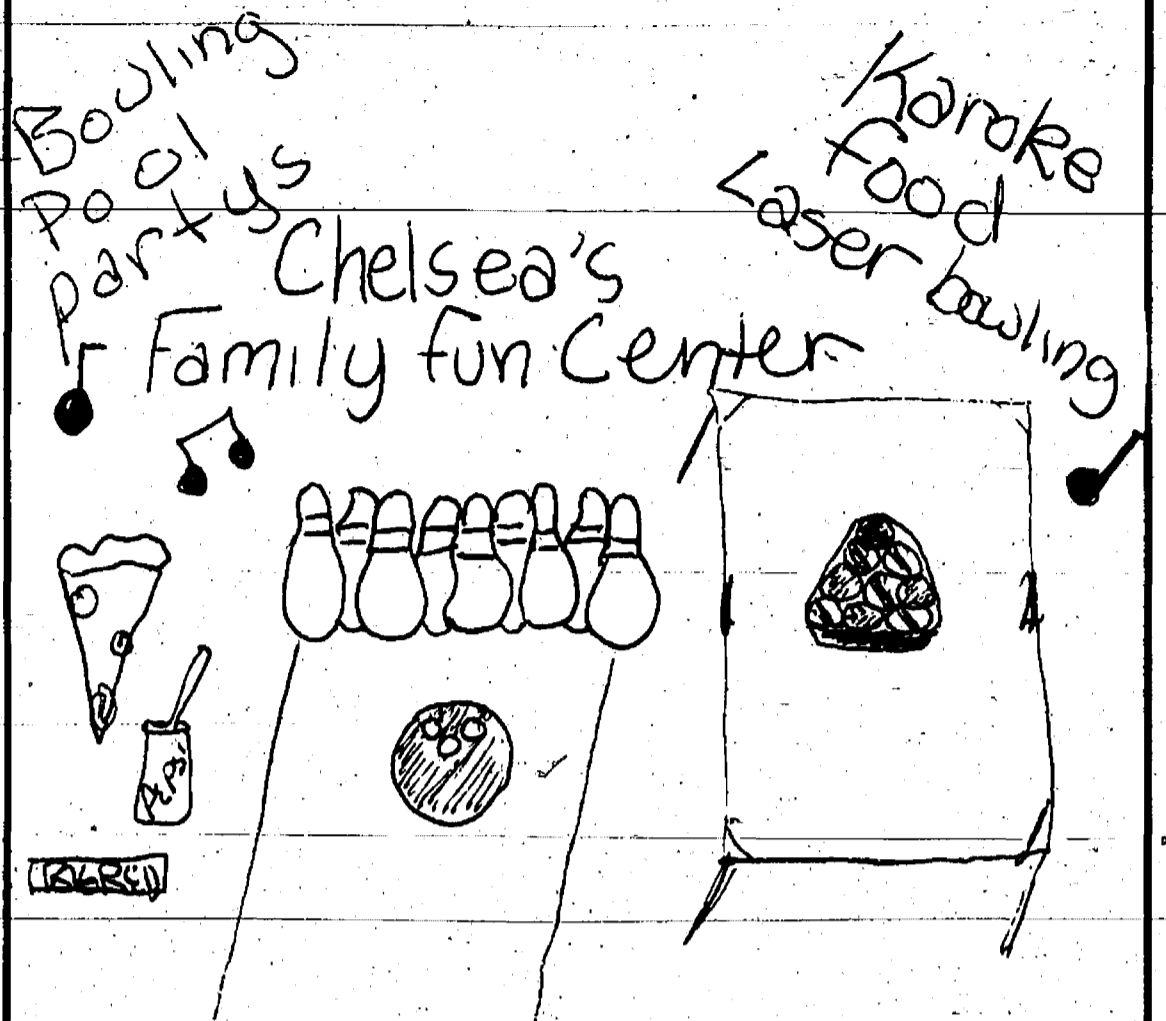 Bowling
Pool
partys
Karoke
food
Laser bowling
Chelsea's
Family fun Center
PEPSI
BIGRED